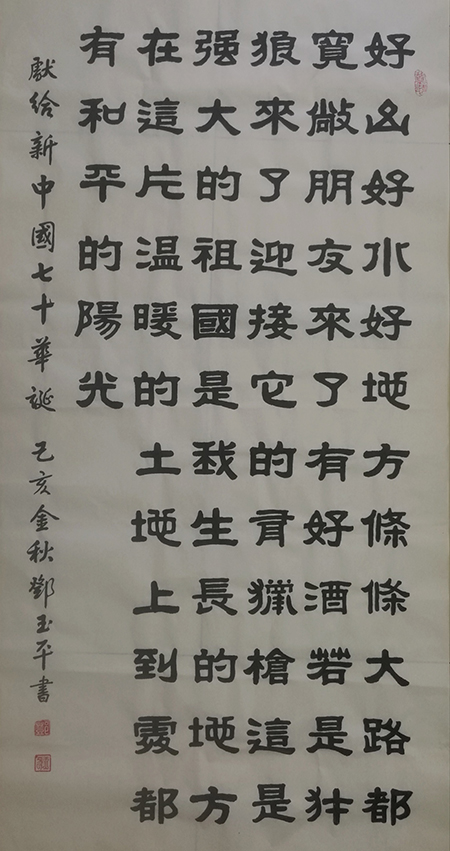 好山好水好地方條條大路都
寬敞朋友來了有好酒若是犲
狼來了迎接它的有獵槍這是
强大的祖國是我生長的地方
在這片温暖的土地上到處都
有和平的陽光
獻給新中國七十華誕 己亥金秋鄧玉平書